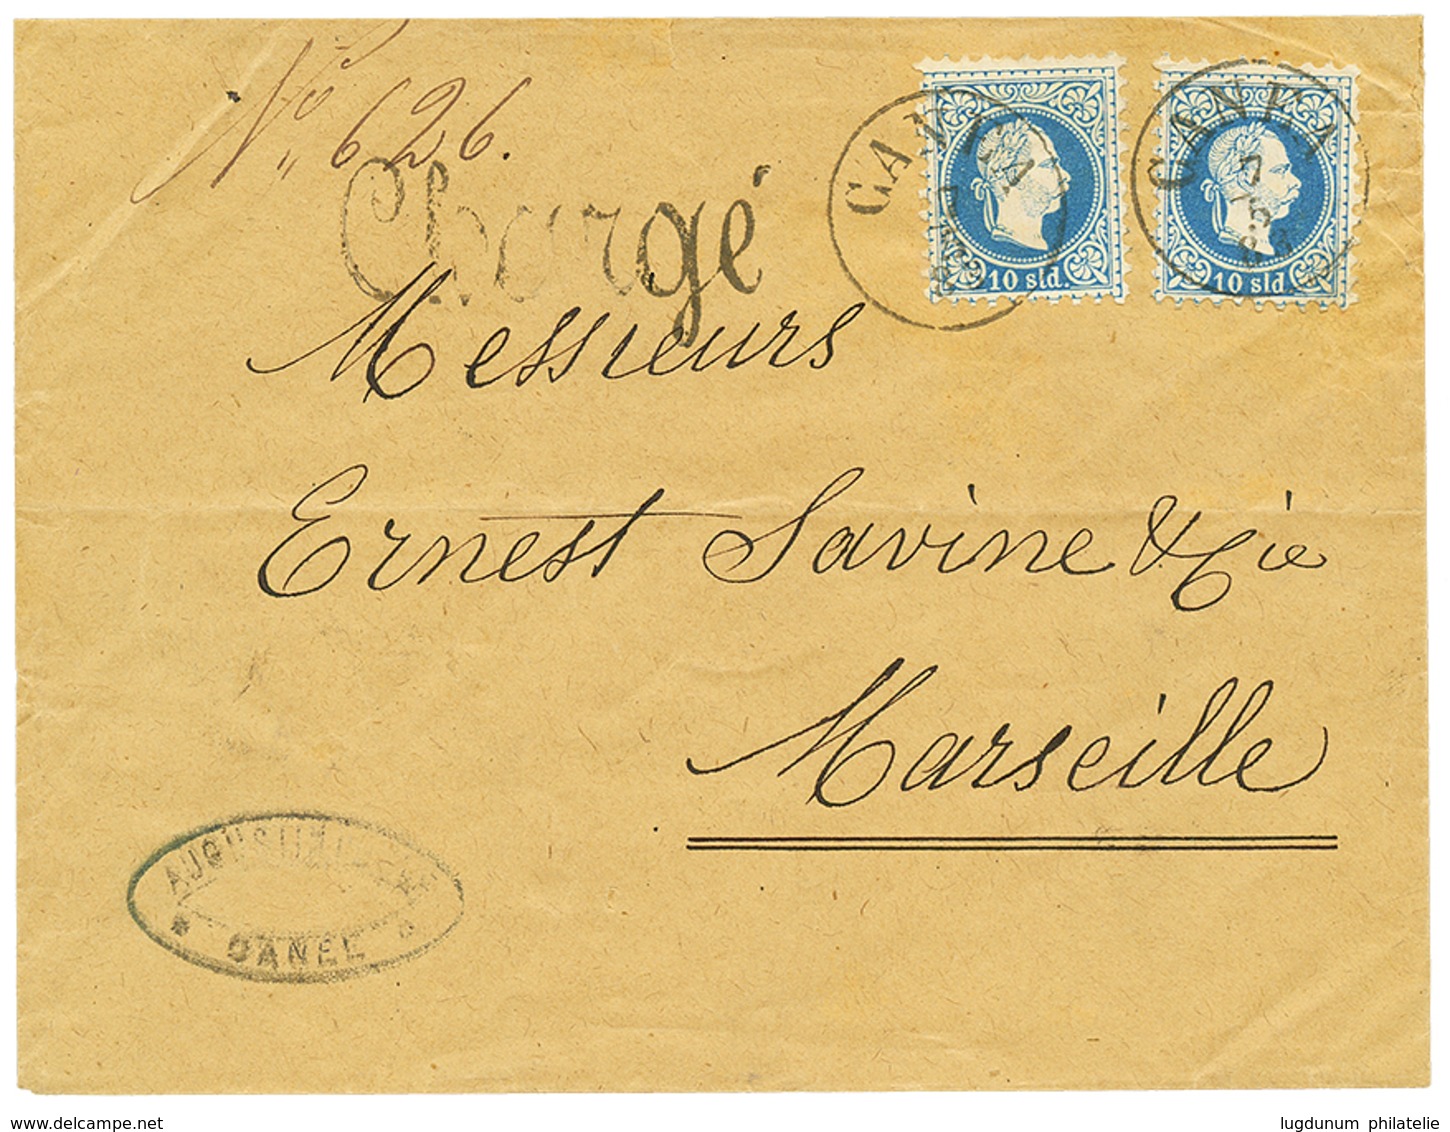 No 626.
Chargé
CANEA
7
CANEA
7
10 sld.
10 sld.
Messieurs
Ernest Savine & Cie
Marseille
CANEE
www.delcampe.net
lugdunum philatelie